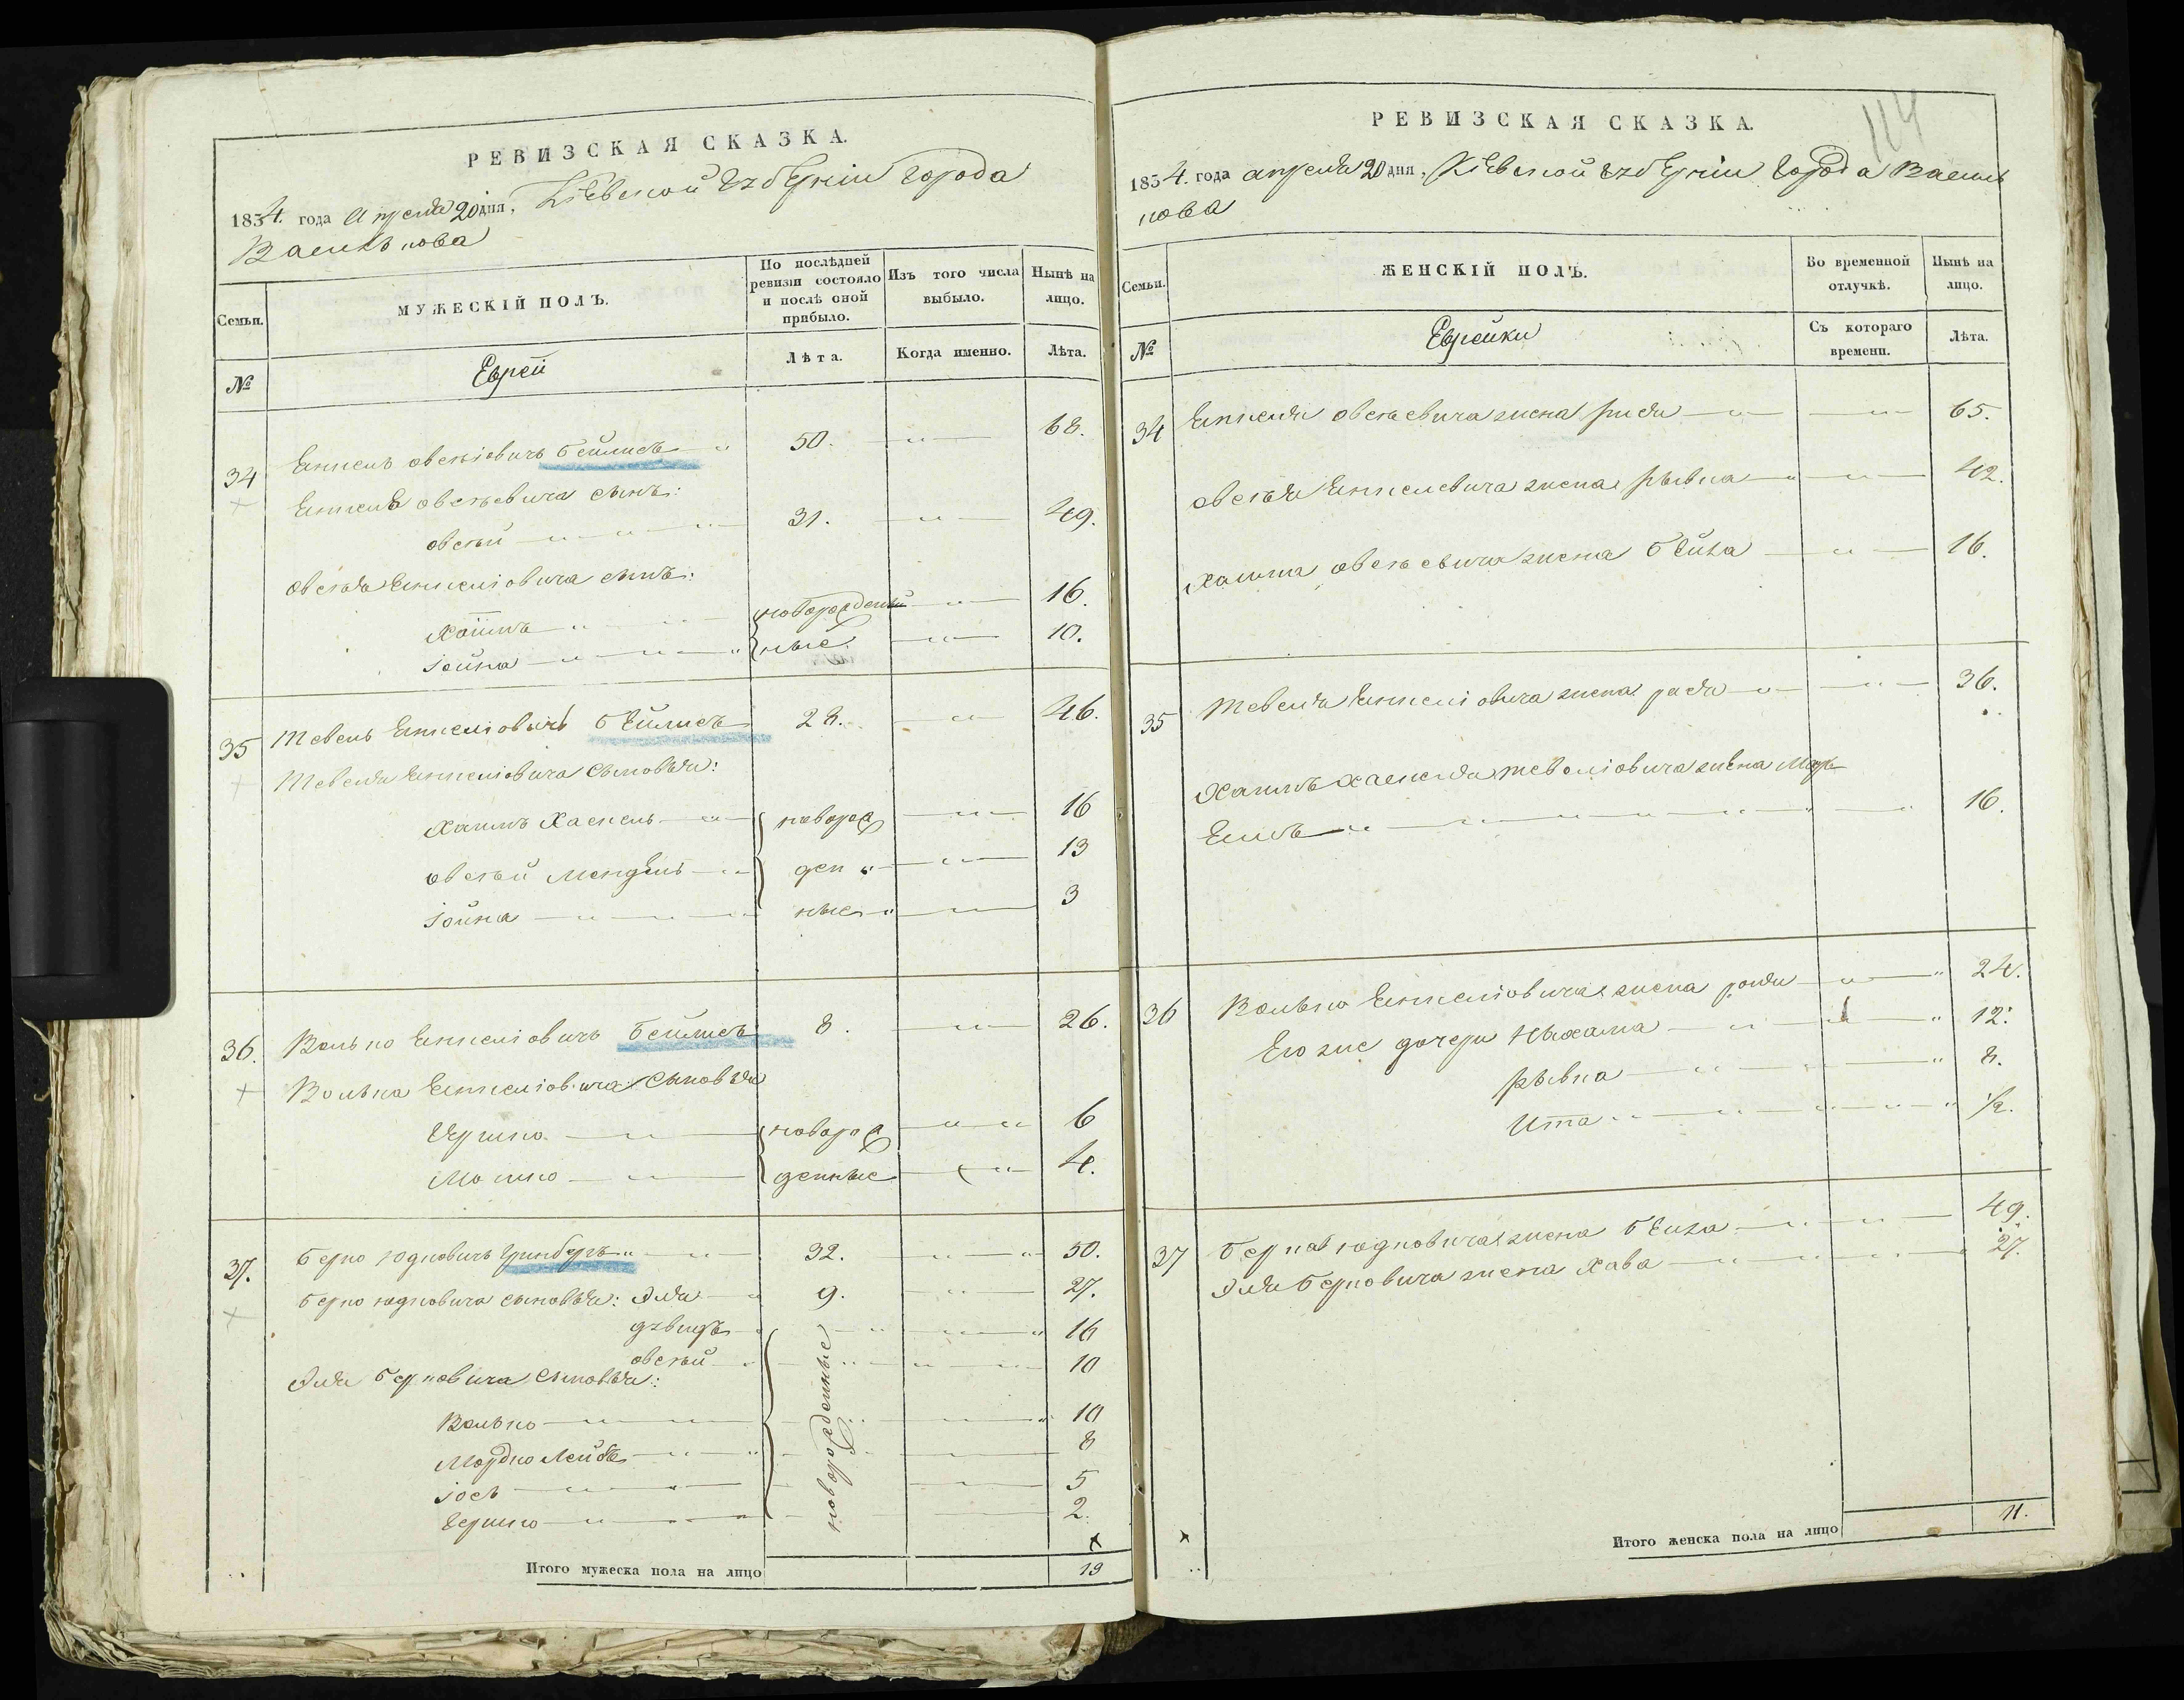 РЕВИЗСКАЯ СКАЗКА.
1834. года Апреля 20 дня, Кіевской Губерніи города
Василькова
Семьи.
МУЖЕСКІЙ ПОЛЪ.
По послѣдней ревизіи состояло и послѣ оной прибыло.
Изъ того числа выбыло.
Нынѣ на лицо.
№
Еврей
Лѣта.
Когда именно.
Лѣта.
34 Енкель Овсѣіовичъ Бейлисъ 50. 68.
Енкеля Овсѣевича сынъ:
Овсѣй 31. 49.
Овсѣя Енкеліовича сынъ:
новорожденны 16.
Іойна ные 10.
35 Тевель Енкеліовичъ Бейлисъ 28. 46.
Тевеля Енкеліовича сыновья:
Хаимъ Хаскель новорож 16
Овсѣй Мендель ден 13
Іойна ные 3
36. Волько Енкеліовичъ Бейлисъ 8. 26.
Волька Енкеліовича сыновья
Гершко новорож 6
Мошко денные 4.
37. Берко Юдковичъ Гринбергъ 32. 50.
Берко Юдковича сыновья: Эля 9. 27.
Дувидъ 16
Овсѣй 10
Эля Берковича сыновья:
новорожденные
Волько 10
Мордко Лейбъ 8
Іось 5
Гершко 2.
Итого мужеска пола на лицо 19
114
РЕВИЗСКАЯ СКАЗКА.
1834. года апреля 20 дня, Кіевской Губерніи города Василь
кова
Семьи.
ЖЕНСКІЙ ПОЛЪ.
Во временной отлучкѣ.
Нынѣ на лицо.
№
Еврейки
Съ котораго времени.
Лѣта.
34 Енкеля Овсѣевича жена 65.
Овсѣя Енкелевича жена Рывка 42.
Хаима Овсѣевича жена Бейла 16.
35 Тевеля Енкеліовича жена 36.
Хаимъ Хаскеля Тевеліовича жена
16.
36 Волько Енкеліовича жена 24.
Его же дочери Ныхама 12.
Рывка 8.
Ита ½.
37 Берка Юдковича жена Бейла 49.
Эля Берковича жена Хава 27.
Итого женска пола на лицо 11.